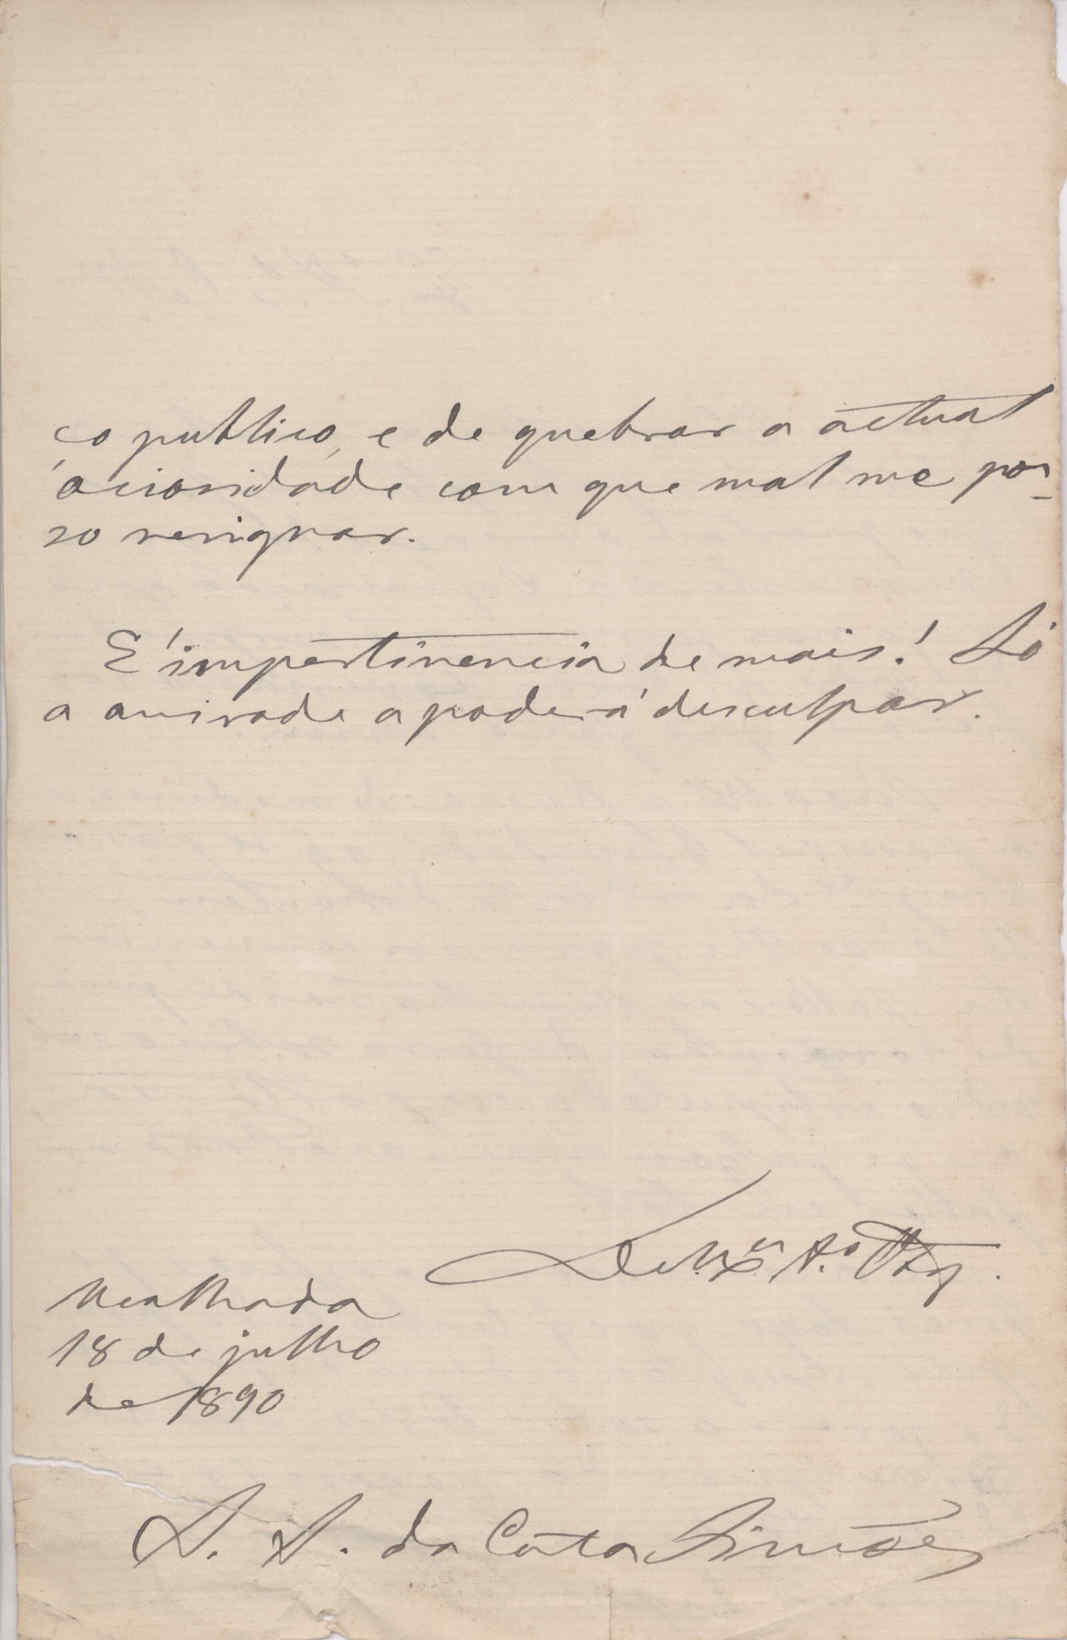 ço publico, e de quebrar a actual
ociosidade com que mal me pos-
so resignar.
E' impertinencia de mais! Só
a amisade a poderá desculpar.
De V. Ex.ª A.º
Mealhada
18 de julho
de 1890
A. A. da Costa Simões